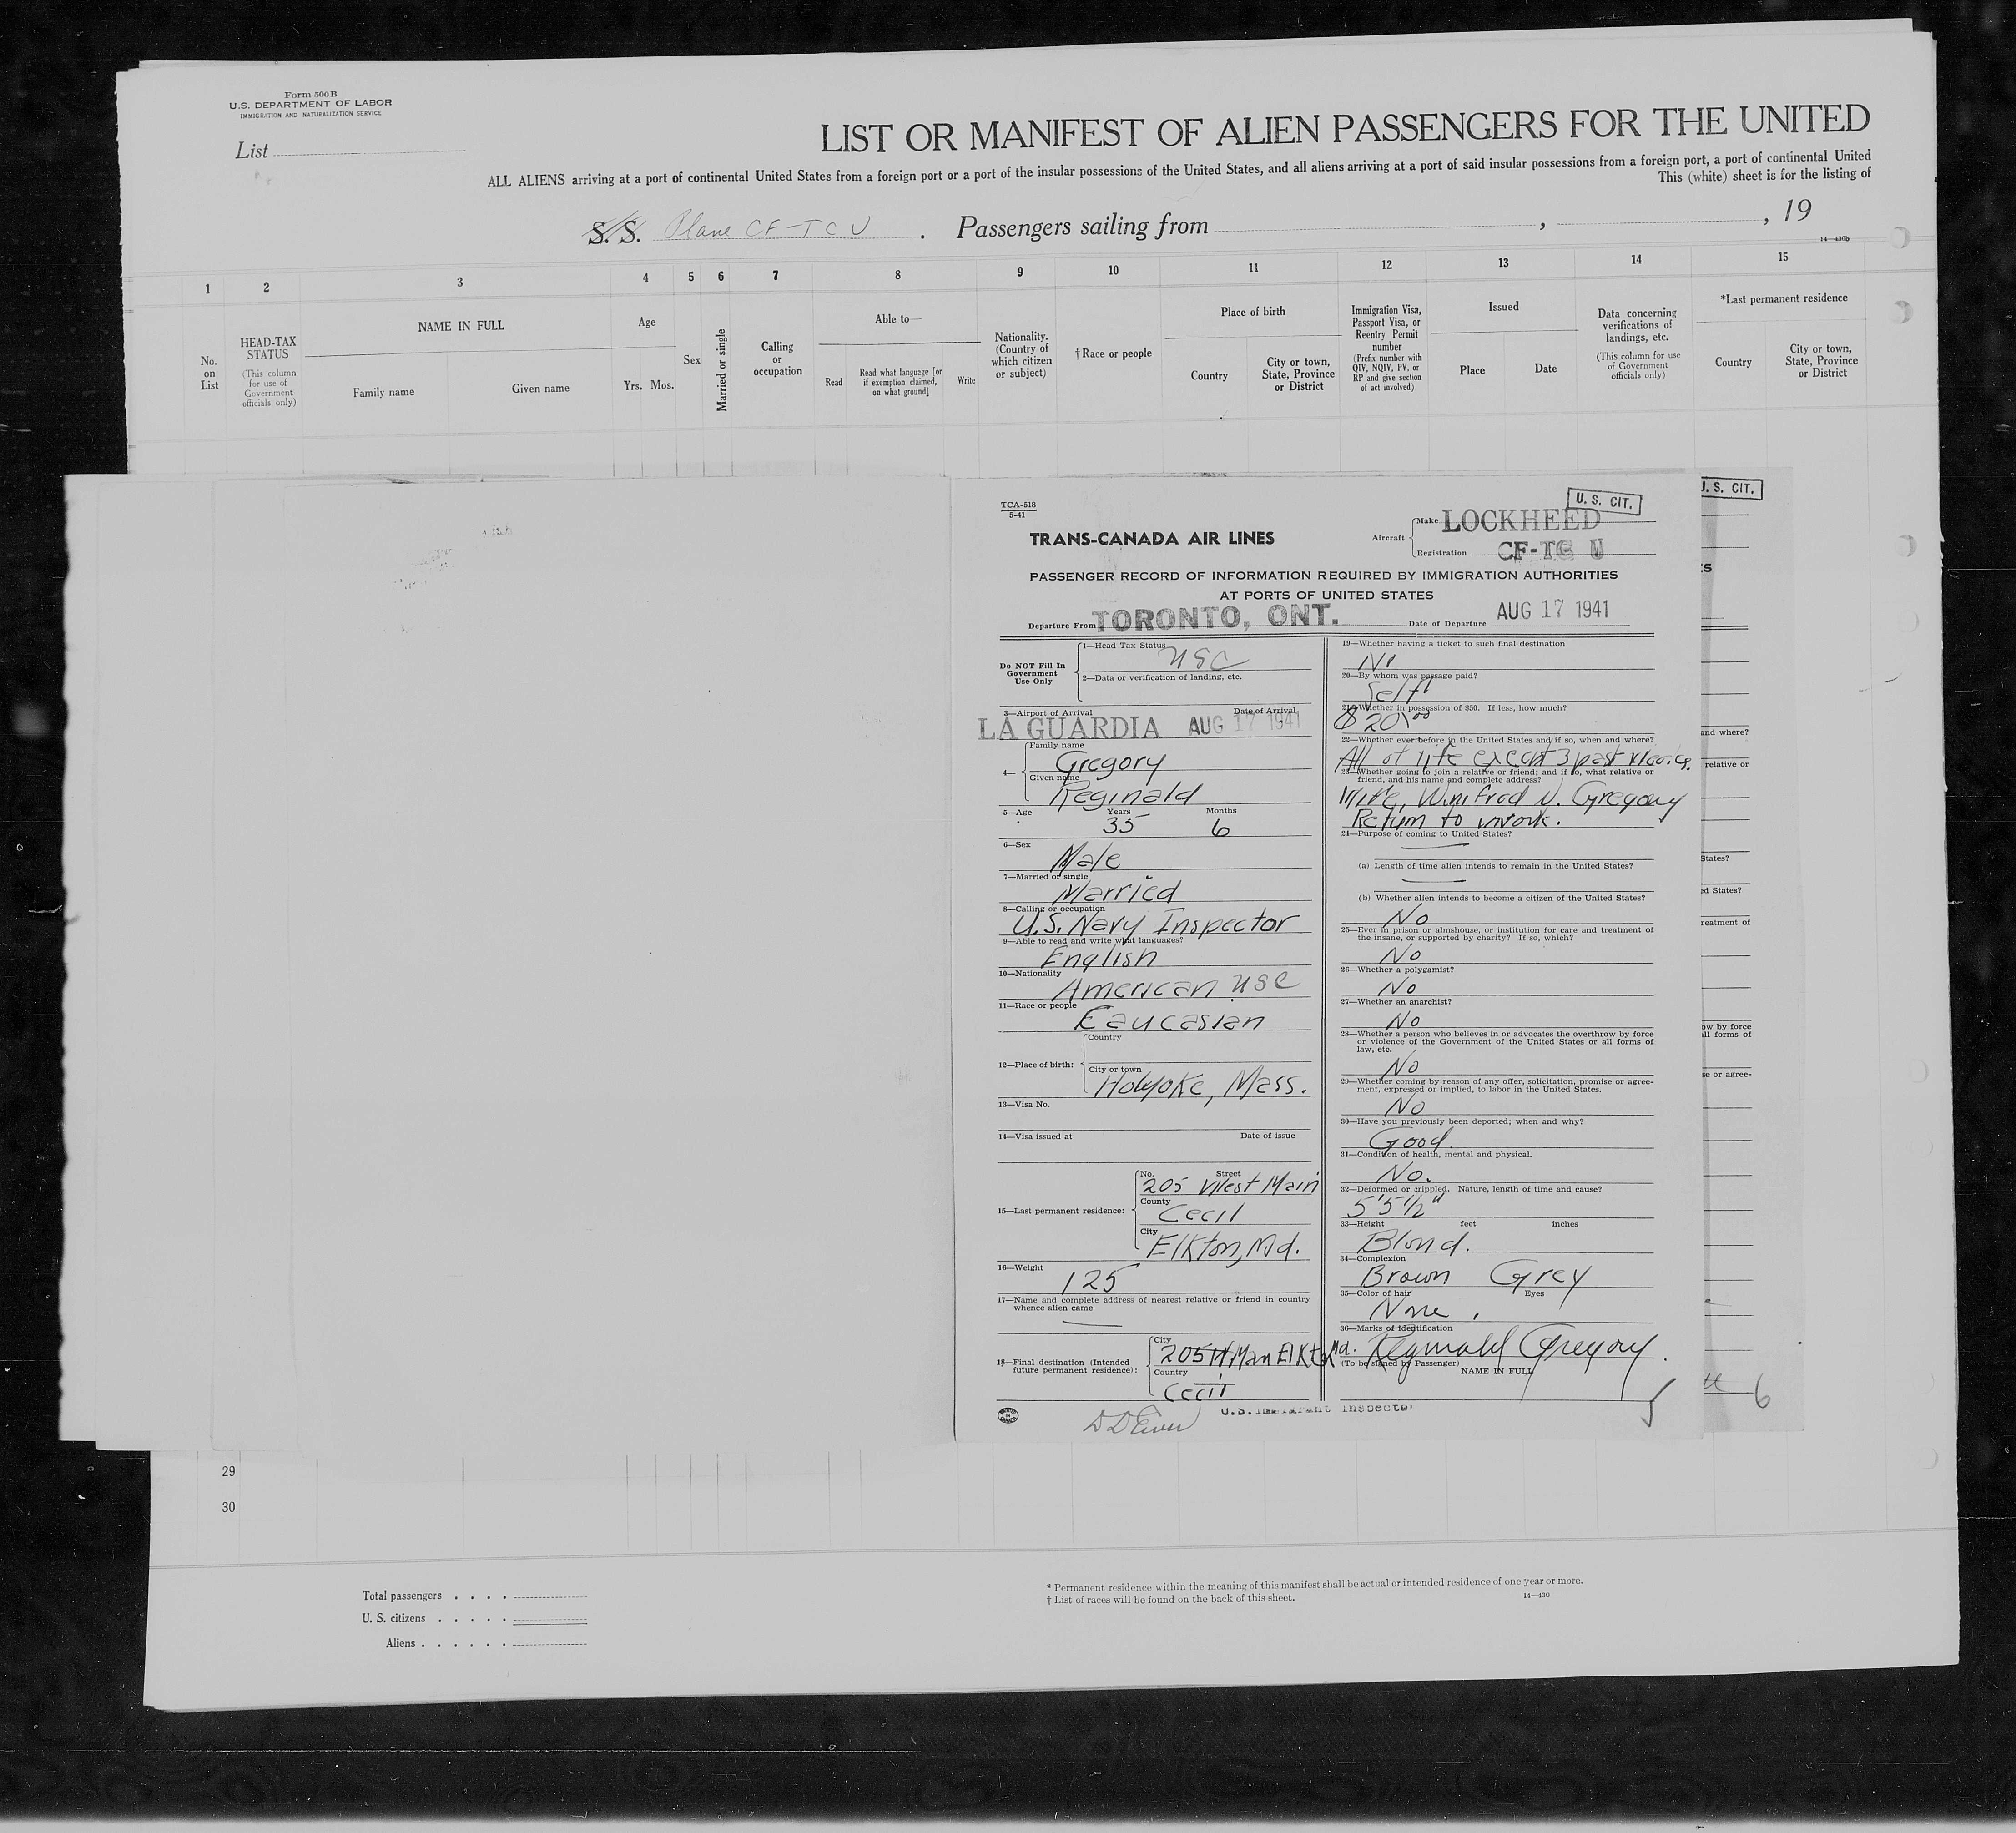 Form 500 B
U.S. DEPARTMENT OF LABOR
IMMIGRATION AND NATURALIZATION SERVICE
List
LIST OR MANIFEST OF ALIEN PASSENGERS FOR THE UNITED
ALL ALIENS arriving at a port of continental United States from a foreign port or a port of the insular possessions of the United States, and all aliens arriving at a port of said insular possessions from a foreign port, a port of continental United
This (white) sheet is for the listing of
S. S. Plane CF-TCU. Passengers sailing from , , 19
14—430b
1 2 3 4 5 6 7 8 9 10 11 12 13 14 15
No. on List
HEAD-TAX STATUS
(This column for use of Government officials only)
NAME IN FULL
Family name Given name
Age
Yrs. Mos.
Sex
Married or single
Calling or occupation
Able to—
Read
Read what language [or if exemption claimed, on what ground]
Write
Nationality. (Country of which citizen or subject)
†Race or people
Place of birth
Country
City or town, State, Province or District
Immigration Visa, Passport Visa, or Reentry Permit number
(Prefix number with QIV, NQIV, PV, or RP and give section of act involved)
Issued
Place Date
Data concerning verifications of landings, etc.
(This column for use of Government officials only)
*Last permanent residence
Country
City or town, State, Province or District
TCA-518
5-41
TRANS-CANADA AIR LINES
U. S. CIT.
Aircraft
Make LOCKHEED
Registration CF-TC U
PASSENGER RECORD OF INFORMATION REQUIRED BY IMMIGRATION AUTHORITIES
AT PORTS OF UNITED STATES
Departure From TORONTO, ONT. Date of Departure AUG 17 1941
Do NOT Fill In Government Use Only
1—Head Tax Status
USC
2—Data or verification of landing, etc.
3—Airport of Arrival Date of Arrival
LA GUARDIA AUG 17 1941
4—
Family name
Gregory
Given name
Reginald
5—Age Years Months
35 6
6—Sex
Male
7—Married or single
Married
8—Calling or occupation
U.S. Navy Inspector
9—Able to read and write what languages?
English
10—Nationality
American USC
11—Race or people
Caucasian
12—Place of birth:
Country
City or town
Holyoke, Mass.
13—Visa No.
14—Visa issued at Date of issue
15—Last permanent residence:
No. Street
205 West Main
County
Cecil
City
Elkton, Md.
16—Weight
125
17—Name and complete address of nearest relative or friend in country
whence alien came
18—Final destination (Intended
future permanent residence):
City
205 W Main Elkton Md.
Country
Cecil
19—Whether having a ticket to such final destination
No
20—By whom was passage paid?
Self
21—Whether in possession of $50. If less, how much?
$ 20.00
22—Whether ever before in the United States and if so, when and where?
All of life except 3 past
23—Whether going to join a relative or friend; and if so, what relative or
friend, and his name and complete address?
Wife, Winifred N. Gregory
Return to work.
24—Purpose of coming to United States?
(a) Length of time alien intends to remain in the United States?
(b) Whether alien intends to become a citizen of the United States?
No
25—Ever in prison or almshouse, or institution for care and treatment of
the insane, or supported by charity? If so, which?
No
26—Whether a polygamist?
No
27—Whether an anarchist?
No
28—Whether a person who believes in or advocates the overthrow by force
or violence of the Government of the United States or all forms of
law, etc.
No
29—Whether coming by reason of any offer, solicitation, promise or agree-
ment, expressed or implied, to labor in the United States.
No
30—Have you previously been deported; when and why?
Good
31—Condition of health, mental and physical.
No.
32—Deformed or crippled. Nature, length of time and cause?
5'5 1/2"
33—Height feet inches
Blond.
34—Complexion
Brown Grey
35—Color of hair Eyes
None.
36—Marks of Identification
Reginald Gregory.
(To be signed by Passenger) NAME IN FULL
U.S. Immigrant Inspector
5
U. S. CIT.
S
and where?
relative or
States?
ed States?
reatment of
ow by force
ll forms of
se or agree-
6
29
30
Total passengers . . . .
U. S. citizens . . . . .
Aliens . . . . . .
* Permanent residence within the meaning of this manifest shall be actual or intended residence of one year or more.
† List of races will be found on the back of this sheet.
14—430